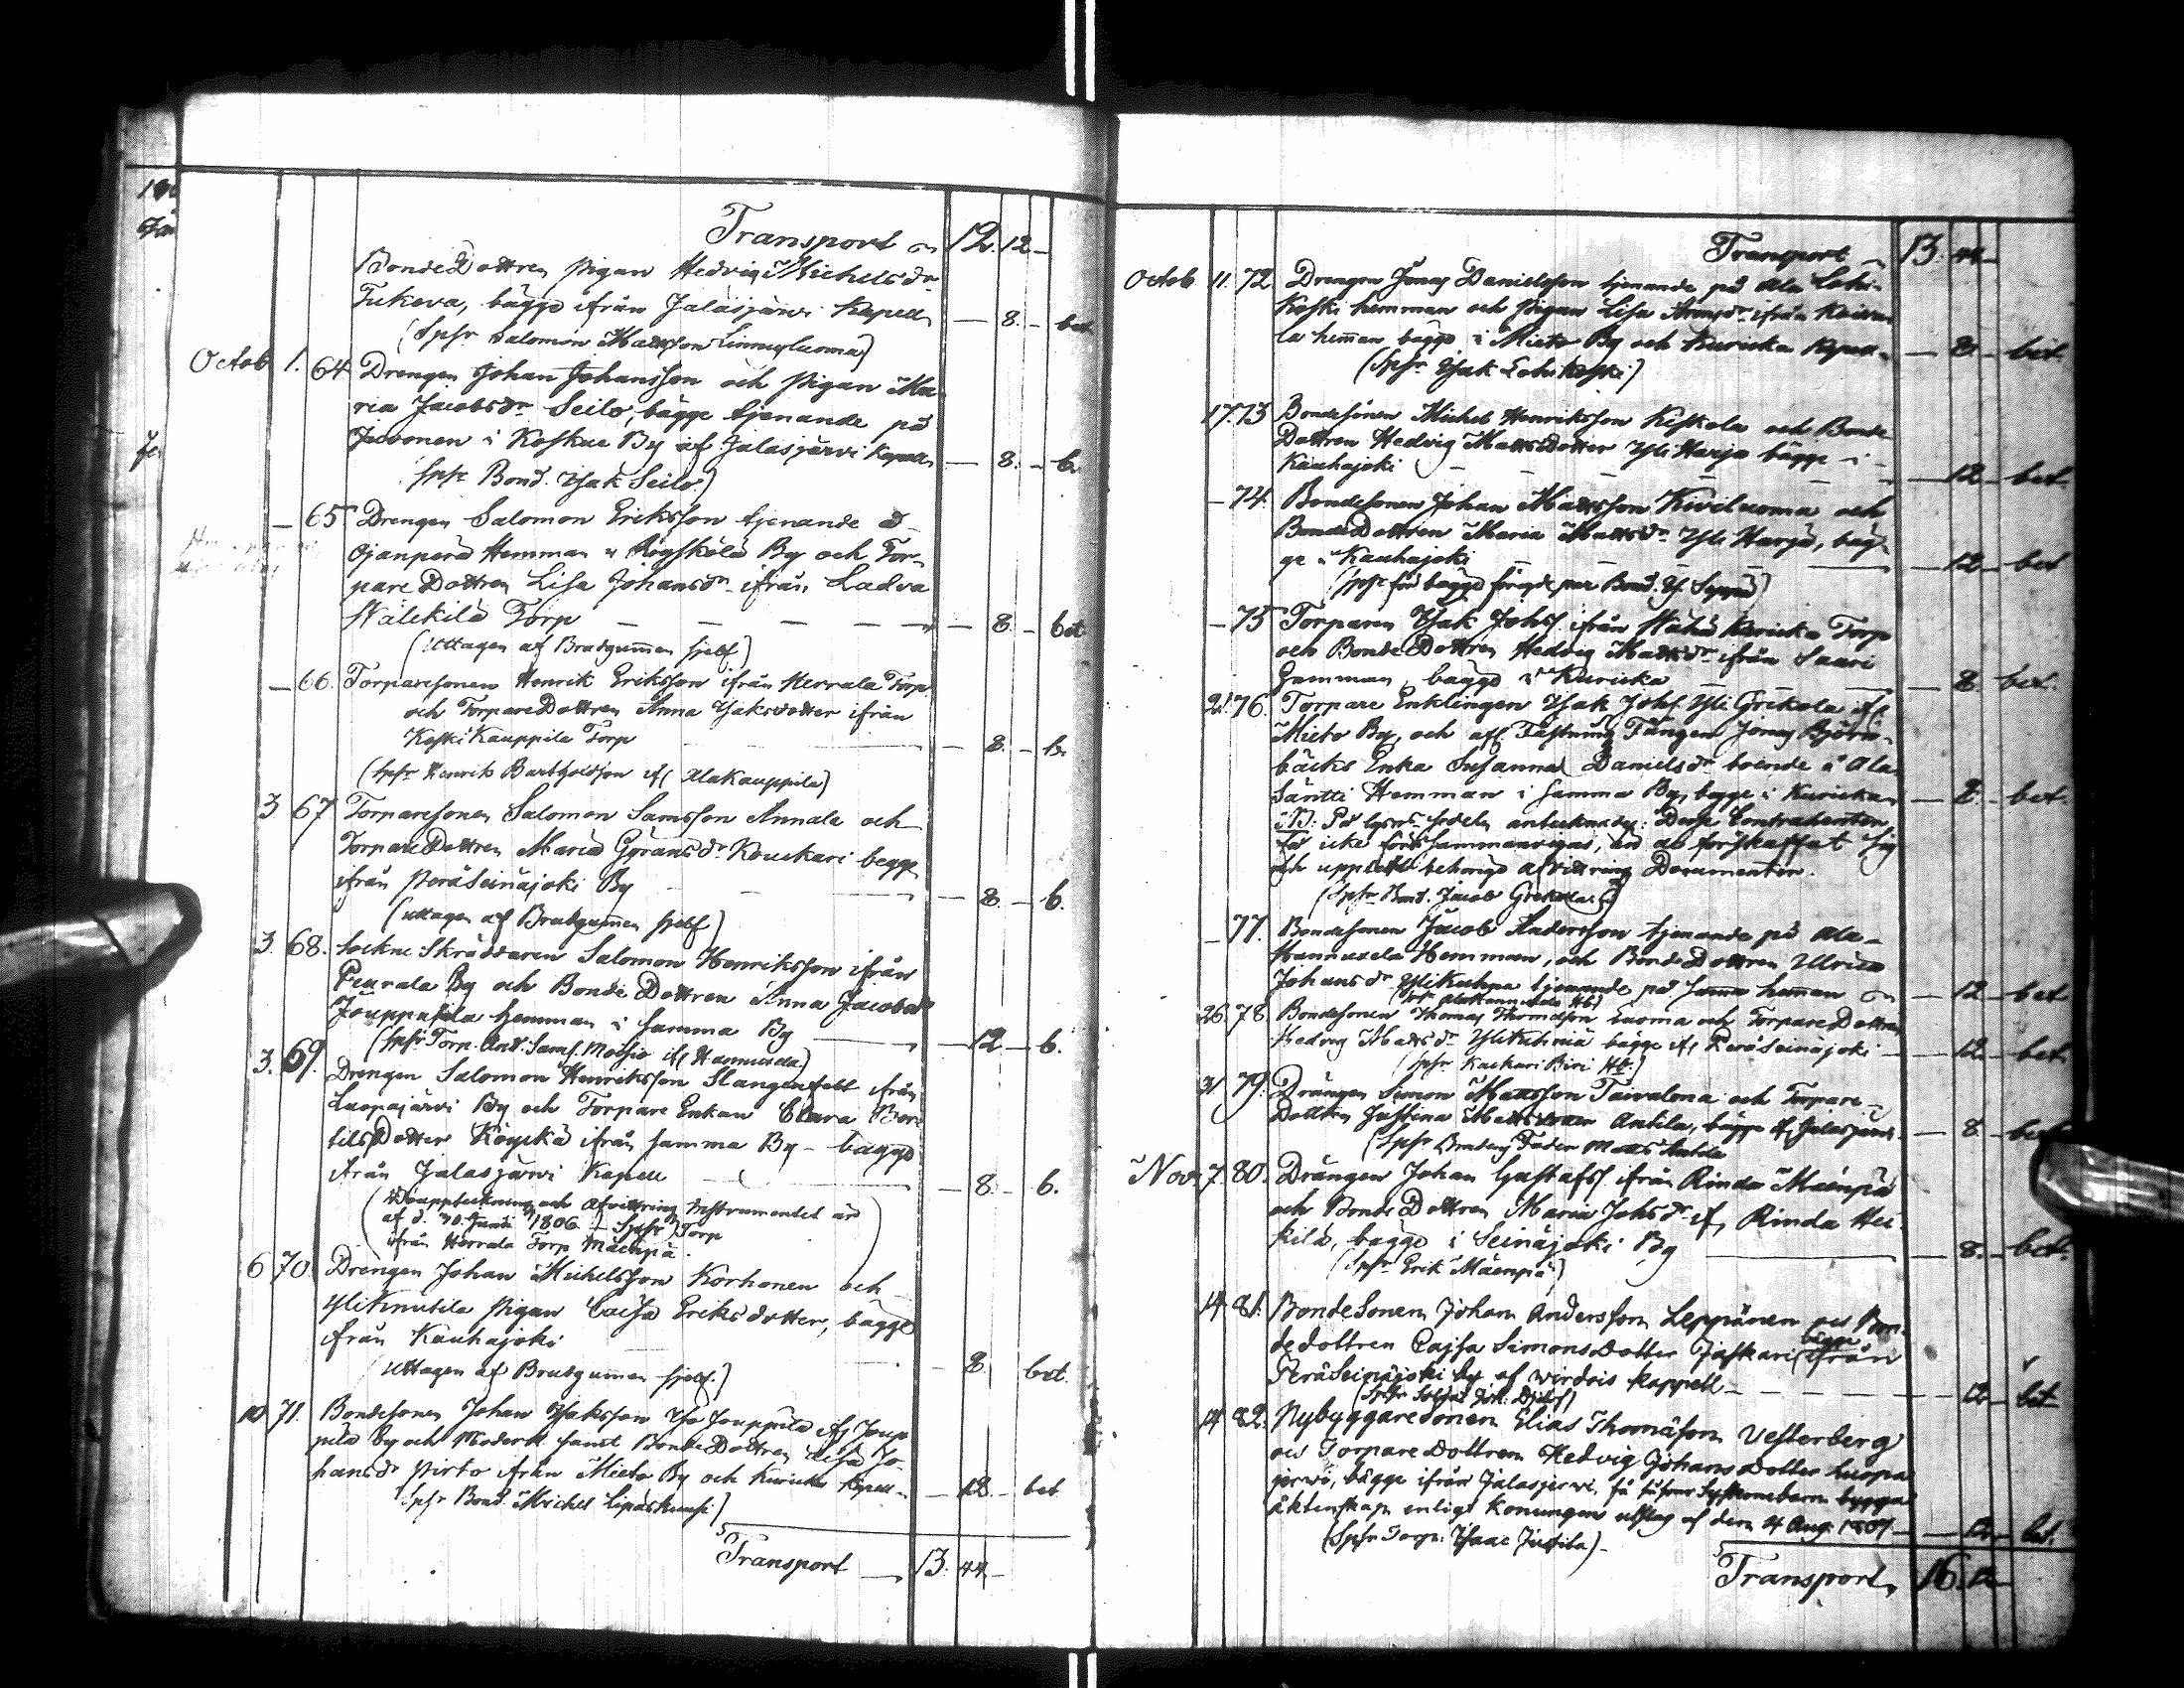 Transport 12. 12
BondeDottren pigan Hedvig Michelsdr
Tukeva, bägge ifrån Jalasjärvi Kapell — 8. — bet
(Spsr Salomon Mattsson Linnusluoma)
Octob 1. 64 Drengen Johan Johansson och pigan Ma
ria Jacobsdr Seilo, bägge tjenande på
Juvonen i Koskue By af Jalasjärvi Kapell — 8. — b.
(Spsr Bond. Isak Seilo)
— 65 Drengen Salomon Eriksson tjenande å
Ojanperä Hemman i Röyskölä By och Tor-
pareDottren Lisa Johansdr ifrån Ladva
Wälikilä Torp — 8. — bet
(Uttagen af Brudgumen sjelf)
— 66. Torparesonen Henrik Eriksson ifrån Herrala Torp
och TorpareDottren Anna Isaksdotter ifrån
Koski Kauppila Torp — 8. — b.
(Spsr Henrik Bartholdsson if. Alakauppila)
3 67 Torparesonen Salomon Samsson Annala och
TorpareDottren Maria Göransdr Kouckari begge
ifrån PeräSeinäjoki By — 8. — b.
(uttagen af Brudgumen sjelf)
3. 68. Sockne Skräddaren Salomon Henriksson ifrån
Peurala By och Bonde Dottren Anna Jacobsdr
Jouppasila hemman i samma By — 12 — b.
(Spsr Torp. And. Sams. if. Hannuxela)
3. 69. Drengen Salomon Henriksson Slangenfelt ifrån
Luopajärvi By och Torpare Enkan Clara Ber
tilsDotter Köyckä ifrån samma By — bägge
ifrån Jalasjärvi Kapell — 8. — b.
(Bouppteckning och Afvittring Instrumentet är
af d. 30 Junii 1806 — Spsr Torp
ifrån Herrala Torp Mäenpä.)
6 70. Drengen Johan Michelsson Korhonen och
YliKnutila pigan Caisa Eriksdotter, bägge
ifrån Kauhajoki — 8. bet.
(Uttagen af Brudgumen sjelf.)
10 71. Bondesonen Johan Isaksson Iso Jouppila if. Joup
pila by och Moderk. samt BondeDottren Lisa Jo-
hansdr Pirto ifrån Mieto By och Kuricka Kapell — 12. — bet
(Spsr Bond. Michel)
Transport — 13. 44 —
Transport 13. 44 —
Octob 11. 72 Drengen Jonas Danielsson tjenande på Ala Lohi-
Koski hemman och pigan Lisa ifrån Koivu
la heman bägge i Mieto By och Kuricka Kapell — 8. — bet.
(Spsr Isak Lohikoski)
17. 73 Bondesonen Michel Henriksson Keskola och Bonde
Dottren Hedvig MattsDotter Yli Harja bägge i
Kauhajoki — 12 — bet.
— 74. Bondesonen Johan Mattsson Kiviluoma och
BondeDottren Maria Mattsdr Yli Harja, bäg-
ge i Kauhajoki — 12 — bet
(Spsr för bägge Bond. Is. Seppä)
— 75 Torparen Isak Johss ifrån Wähä Kuricka Torp
och BondeDottren Hedvig Mattsdr ifrån Saari
Hemman, bägge i Kuricka — 8. bet.
21. 76. Torpare Enklingen Isak Johs. Yli Grekola if.
Mieto By, och afl. Fästning Fången Jonas Björn-
bäcks Enka Susanna Danielsdr boende å Ala
Säntti Hemman i samma By, begge i Kuricka — 8. — bet.
NB. På antecknades: Desse Contrahenter
få icke förr sammanvigas, än de förskaffat sig
och uppvist behörige afvittring Documenter.
(Spsr Bond. Jacob Grekola)
— 77. Bondesonen Jacob Andersson tjenande på Ala-
Hannuxela Hemman, och BondeDottren Ulrica
Johansdr tjenande på samma heman — 12 — bet
(Spsr Alahannuxela Hb)
26. 78. Bondesonen Thomas Thomasson Luoma och TorpareDottren
Hedvig Mattsdr bägge if. PeräSeinäjoki — 12. — bet.
(Spsr Kuckari Hb.)
31 79. Drängen Simon Mattsson Taivalma och Torpare-
Dottren Justina Mattsdotter Antila, bägge if. Jalasjärvi — 8 — bet
(Spsr Brudens Fader Matts Antila
Nov. 7. 80. Drängen Johan Gustafss ifrån Rinda Mäenpä
och BondeDottren Maria Johsdr if. Rinda Hei-
kilä, bägge i Seinäjoki By — 8. — bet.
(Spsr Erik Mäenpä)
14. 81. BondeSonen Johan Andersson Leppänen och Bon-
dedottren Cajsa SimonsDotter Jaskari bägge ifrån
PeräSeinäjoki by af Wirdois Kappell — 12 — bet
(Spsr)
14 82. Nybyggaresonen Elias Thomasson Vesterberg
och TorpareDottren Hedvig Johansdotter Luopa
jerwi, bägge ifrån Jalasjerwi, få såsom Syskonebarn bygga
äktenskap enligt Konungens utslag af den 4 Aug. 1807 — 12 — bet.
(Spsr Torp. Isaac Jussila)
Transport 16. 12